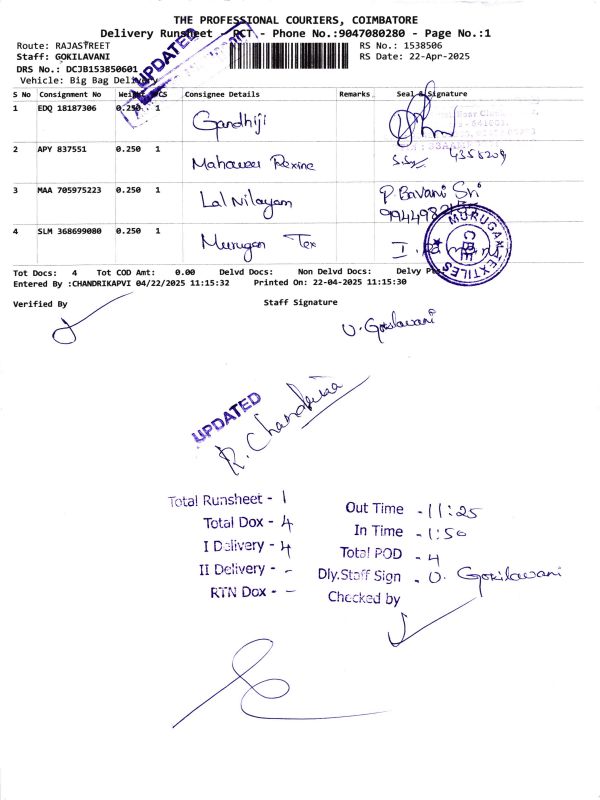 THE PROFESSIONAL COURIERS, COIMBATORE
Delivery Runsheet - PCT - Phone No.:9047080280 - Page No.:1
Route: RAJASTREET
RS No.: 1538506
Staff: GOKILAVANI
RS Date: 22-Apr-2025
DRS No.: DCJB153850601
Vehicle: Big Bag Delivery
UPDATED
S No Consignment No Weight PCS Consignee Details Remarks Seal & Signature
1 EDQ 18187306 0.250 1 Gandhiji
2 APY 837551 0.250 1 Mahaveer Rexine 4358209
3 MAA 705975223 0.250 1 Lal Nilayam P Bavani Sri
4 SLM 368699080 0.250 1 Murugan Tex
MURUGAN TEXTILES CBE
Tot Docs: 4 Tot COD Amt: 0.00 Delvd Docs: Non Delvd Docs: Delvy
Entered By :CHANDRIKAPVI 04/22/2025 11:15:32 Printed On: 22-04-2025 11:15:30
Verified By Staff Signature
U. Gokilavani
UPDATED
R. Chandrikaa
Total Runsheet - 1
Total Dox - 4
I Delivery - 4
II Delivery - -
RTN Dox - -
Out Time - 11:25
In Time - 1:50
Total POD - 4
Dly.Staff Sign - U. Gokilavani
Checked by